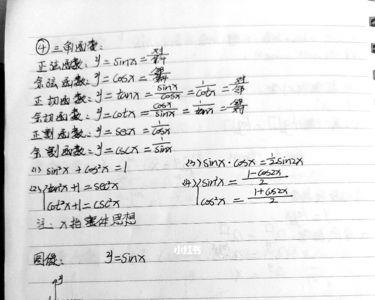 ④三角函数:
正弦函数: y=sinx=对/斜
余弦函数: y=cosx=邻/斜
正切函数: y=tanx=sinx/cosx=1/cotx=对/邻
余切函数: y=cotx=cosx/sinx=1/tanx=邻/对
正割函数: y=secx=1/cosx
余割函数: y=cscx=1/sinx
(1) sin²x+cos²x=1 (3) sinx·cosx=½sin2x
(2) {tan²x+1=sec²x (4) {sin²x=(1-cos2x)/2
cot²x+1=csc²x cos²x=(1+cos2x)/2
注: x指整体思想
小红书
图像: y=sinx
y